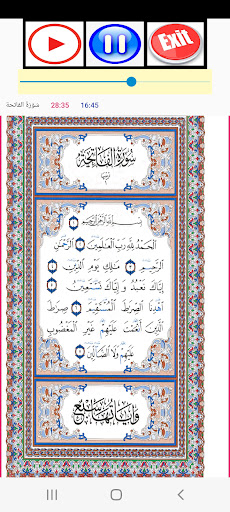 Exit
سورة الفاتحة 28:35 16:45
سُورَةُ الفَاتِحَةِ
بِسْمِ اللَّهِ الرَّحْمَنِ الرَّحِيمِ
الْحَمْدُ لِلَّهِ رَبِّ الْعَالَمِينَ الرَّحْمَنِ
الرَّحِيمِ مَلِكِ يَوْمِ الدِّينِ
إِيَّاكَ نَعْبُدُ وَ إِيَّاكَ نَسْتَعِينُ
اهْدِنَا الصِّرَاطَ الْمُسْتَقِيمَ صِرَاطَ
الَّذِينَ أَنْعَمْتَ عَلَيْهِمْ غَيْرِ الْمَغْضُوبِ
عَلَيْهِمْ وَلَا الضَّالِّينَ
وَآيَاتُهَا سَبْعٌ